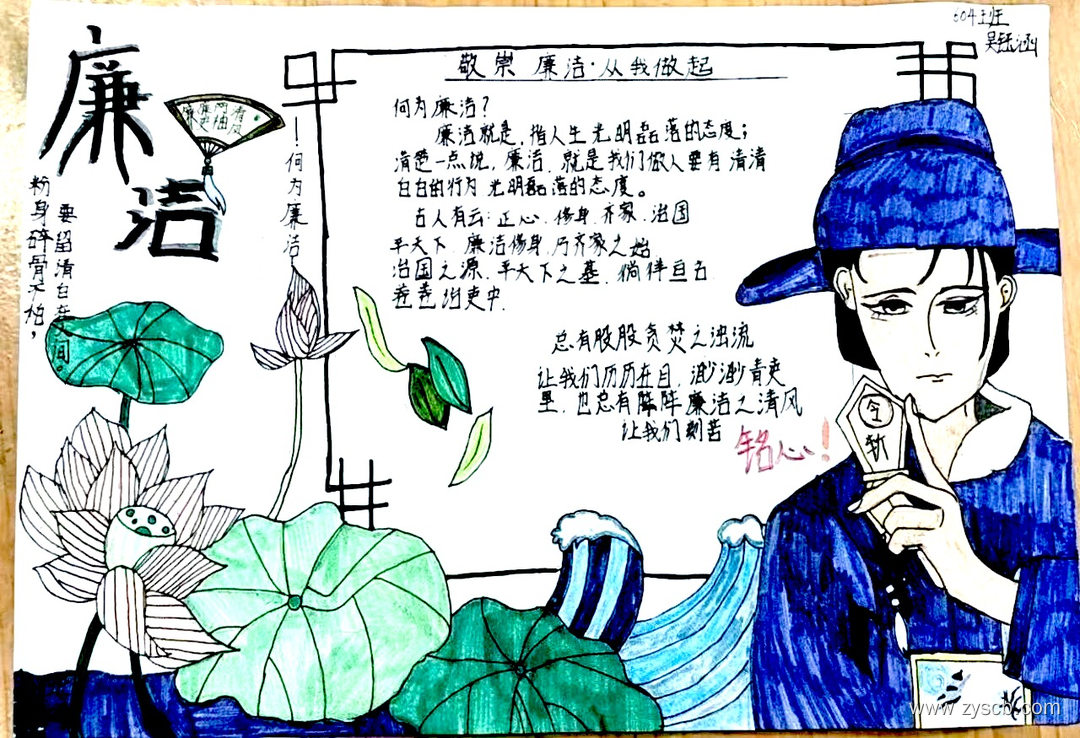 604班
廉洁
清风
两袖
粉身碎骨不怕，
要留清白在人间。
！何为廉洁
敬崇 廉洁·从我做起
何为廉洁？
廉洁就是，指人生光明磊落的态度；
清楚一点说，廉洁，就是我们做人要有清清
白白的行为 光明磊落的态度。
古人有云：正心、修身、齐家、治国
平天下，廉洁修身，乃齐家之始
治国之源，平天下之基，倘徉自古
总有股股贪焚之浊流
让我们历历在目，渺渺青史
里，也总有阵阵廉洁之清风
让我们刻苦 铭心！
令
斩
www.zyscb.com